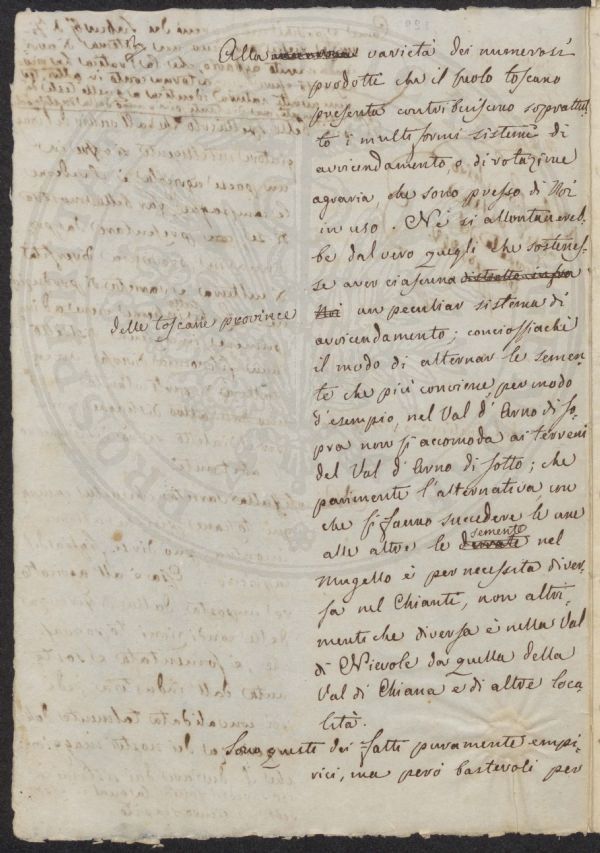 Alla varietà dei numerosi
prodotti che il suolo toscano
presenta contribuiscono soprattut-
to i multiformi sistemi di
avvicendamento, o di rotazione
agraria, che sono presso di Noi
in uso. Nè si allontanereb-
be dal vero quegli che sostenes-
se aver ciascuna distretto infra
Noi un peculiar sistema di
delle toscane province
avvicendamento; conciossiachè
il modo di alternar le semen-
te che più conviene, per modo
d'esempio, nel Val d'Arno di so-
pra non si accomoda ai terreni
del Val d'Arno di sotto; che
parimente l'alternativa, con
che si fanno succedere le une
alle altre le derrate semente nel
Mugello è per necessità diver-
sa nel Chianti, non altri-
menti che diversa è nella Val
di Nievole da quella della
Val di Chiana e di altre loca-
lità.
Sono questi dei fatti puramente empi-
rici, ma però bastevoli per